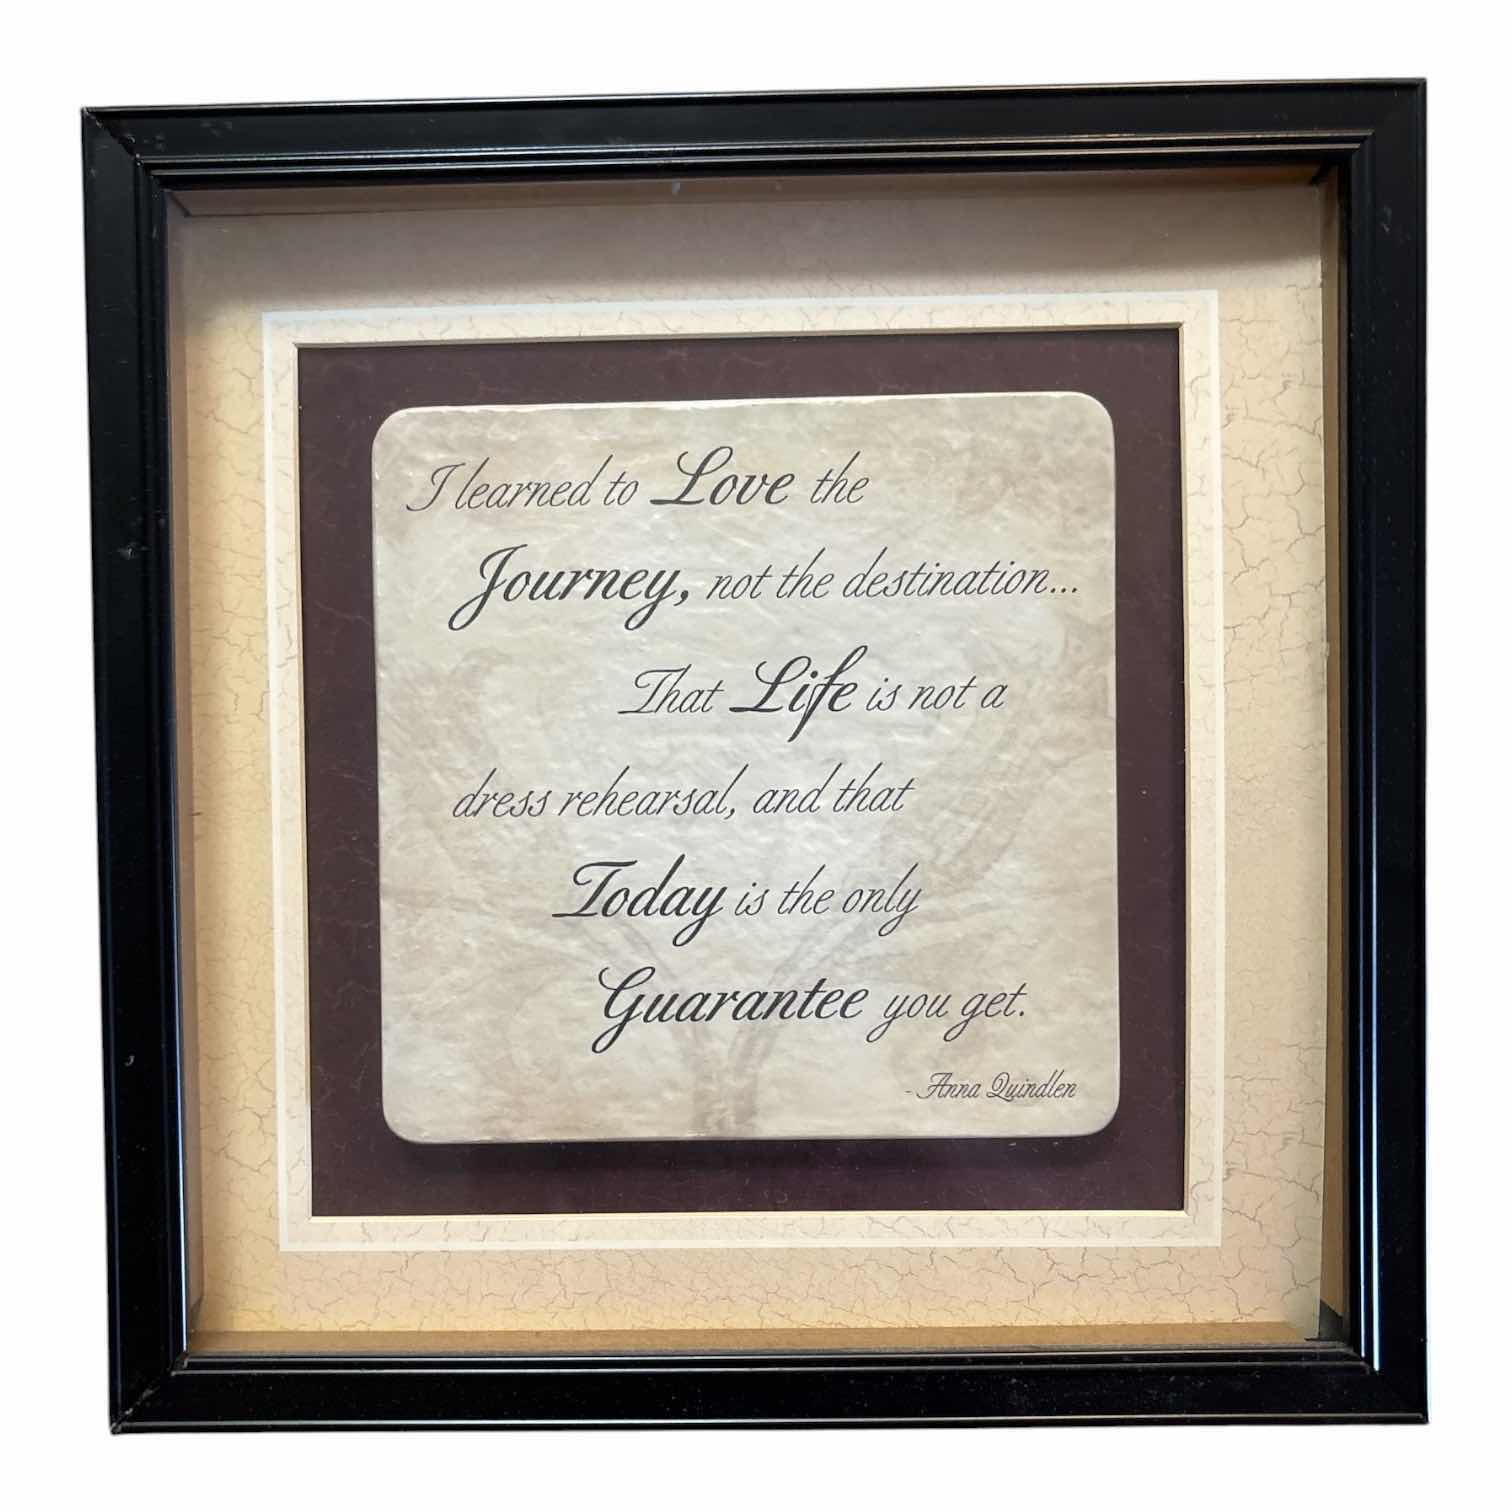 I learned to Love the
Journey, not the destination...
That Life is not a
dress rehearsal, and that
Today is the only
Guarantee you get.
- Anna Quindlen